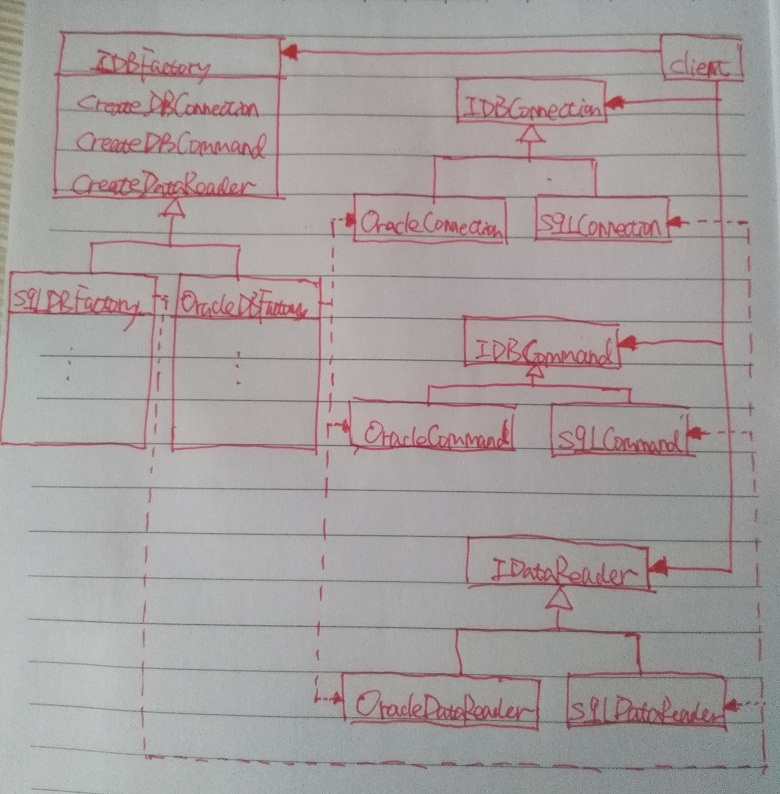 IDBFactory
client
CreateDBConnection
IDBConnection
CreateDBCommand
CreateDataReader
OracleConnection
SqlConnection
SqlDBFactory
OracleDBFactory
IDBCommand
OracleCommand
SqlCommand
IDataReader
OracleDataReader
SqlDataReader